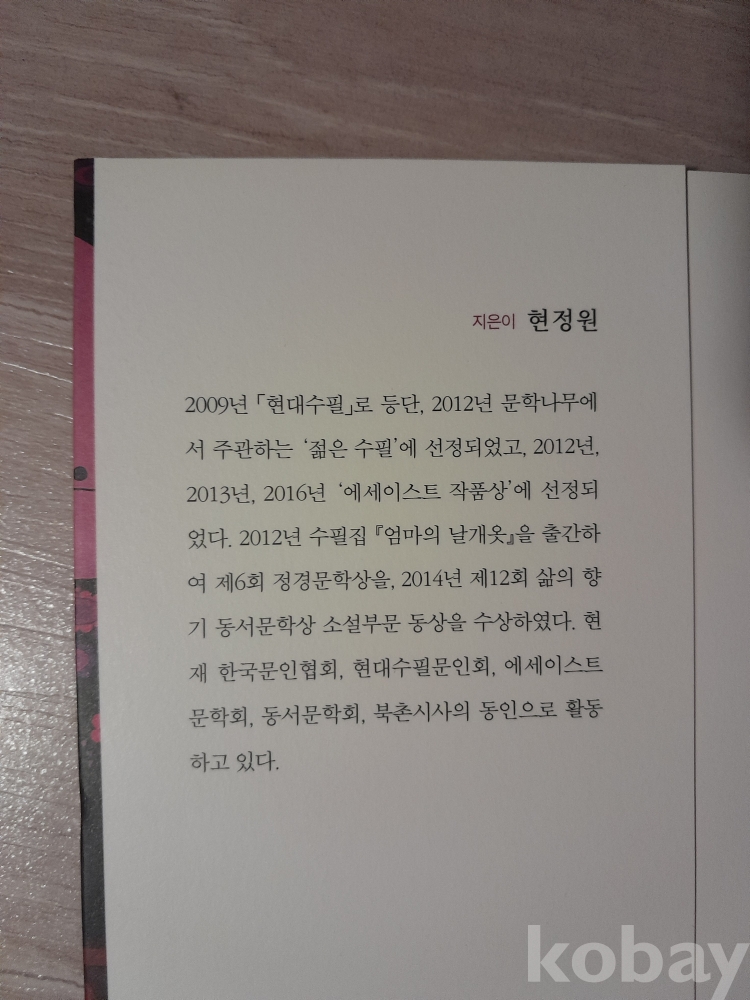 지은이 현정원
2009년 「현대수필」로 등단, 2012년 문학나무에
서 주관하는 ‘젊은 수필’에 선정되었고, 2012년,
2013년, 2016년 ‘에세이스트 작품상’에 선정되
었다. 2012년 수필집 『엄마의 날개옷』을 출간하
여 제6회 정경문학상을, 2014년 제12회 삶의 향
기 동서문학상 소설부문 동상을 수상하였다. 현
재 한국문인협회, 현대수필문인회, 에세이스트
문학회, 동서문학회, 북촌시사의 동인으로 활동
하고 있다.
kobay